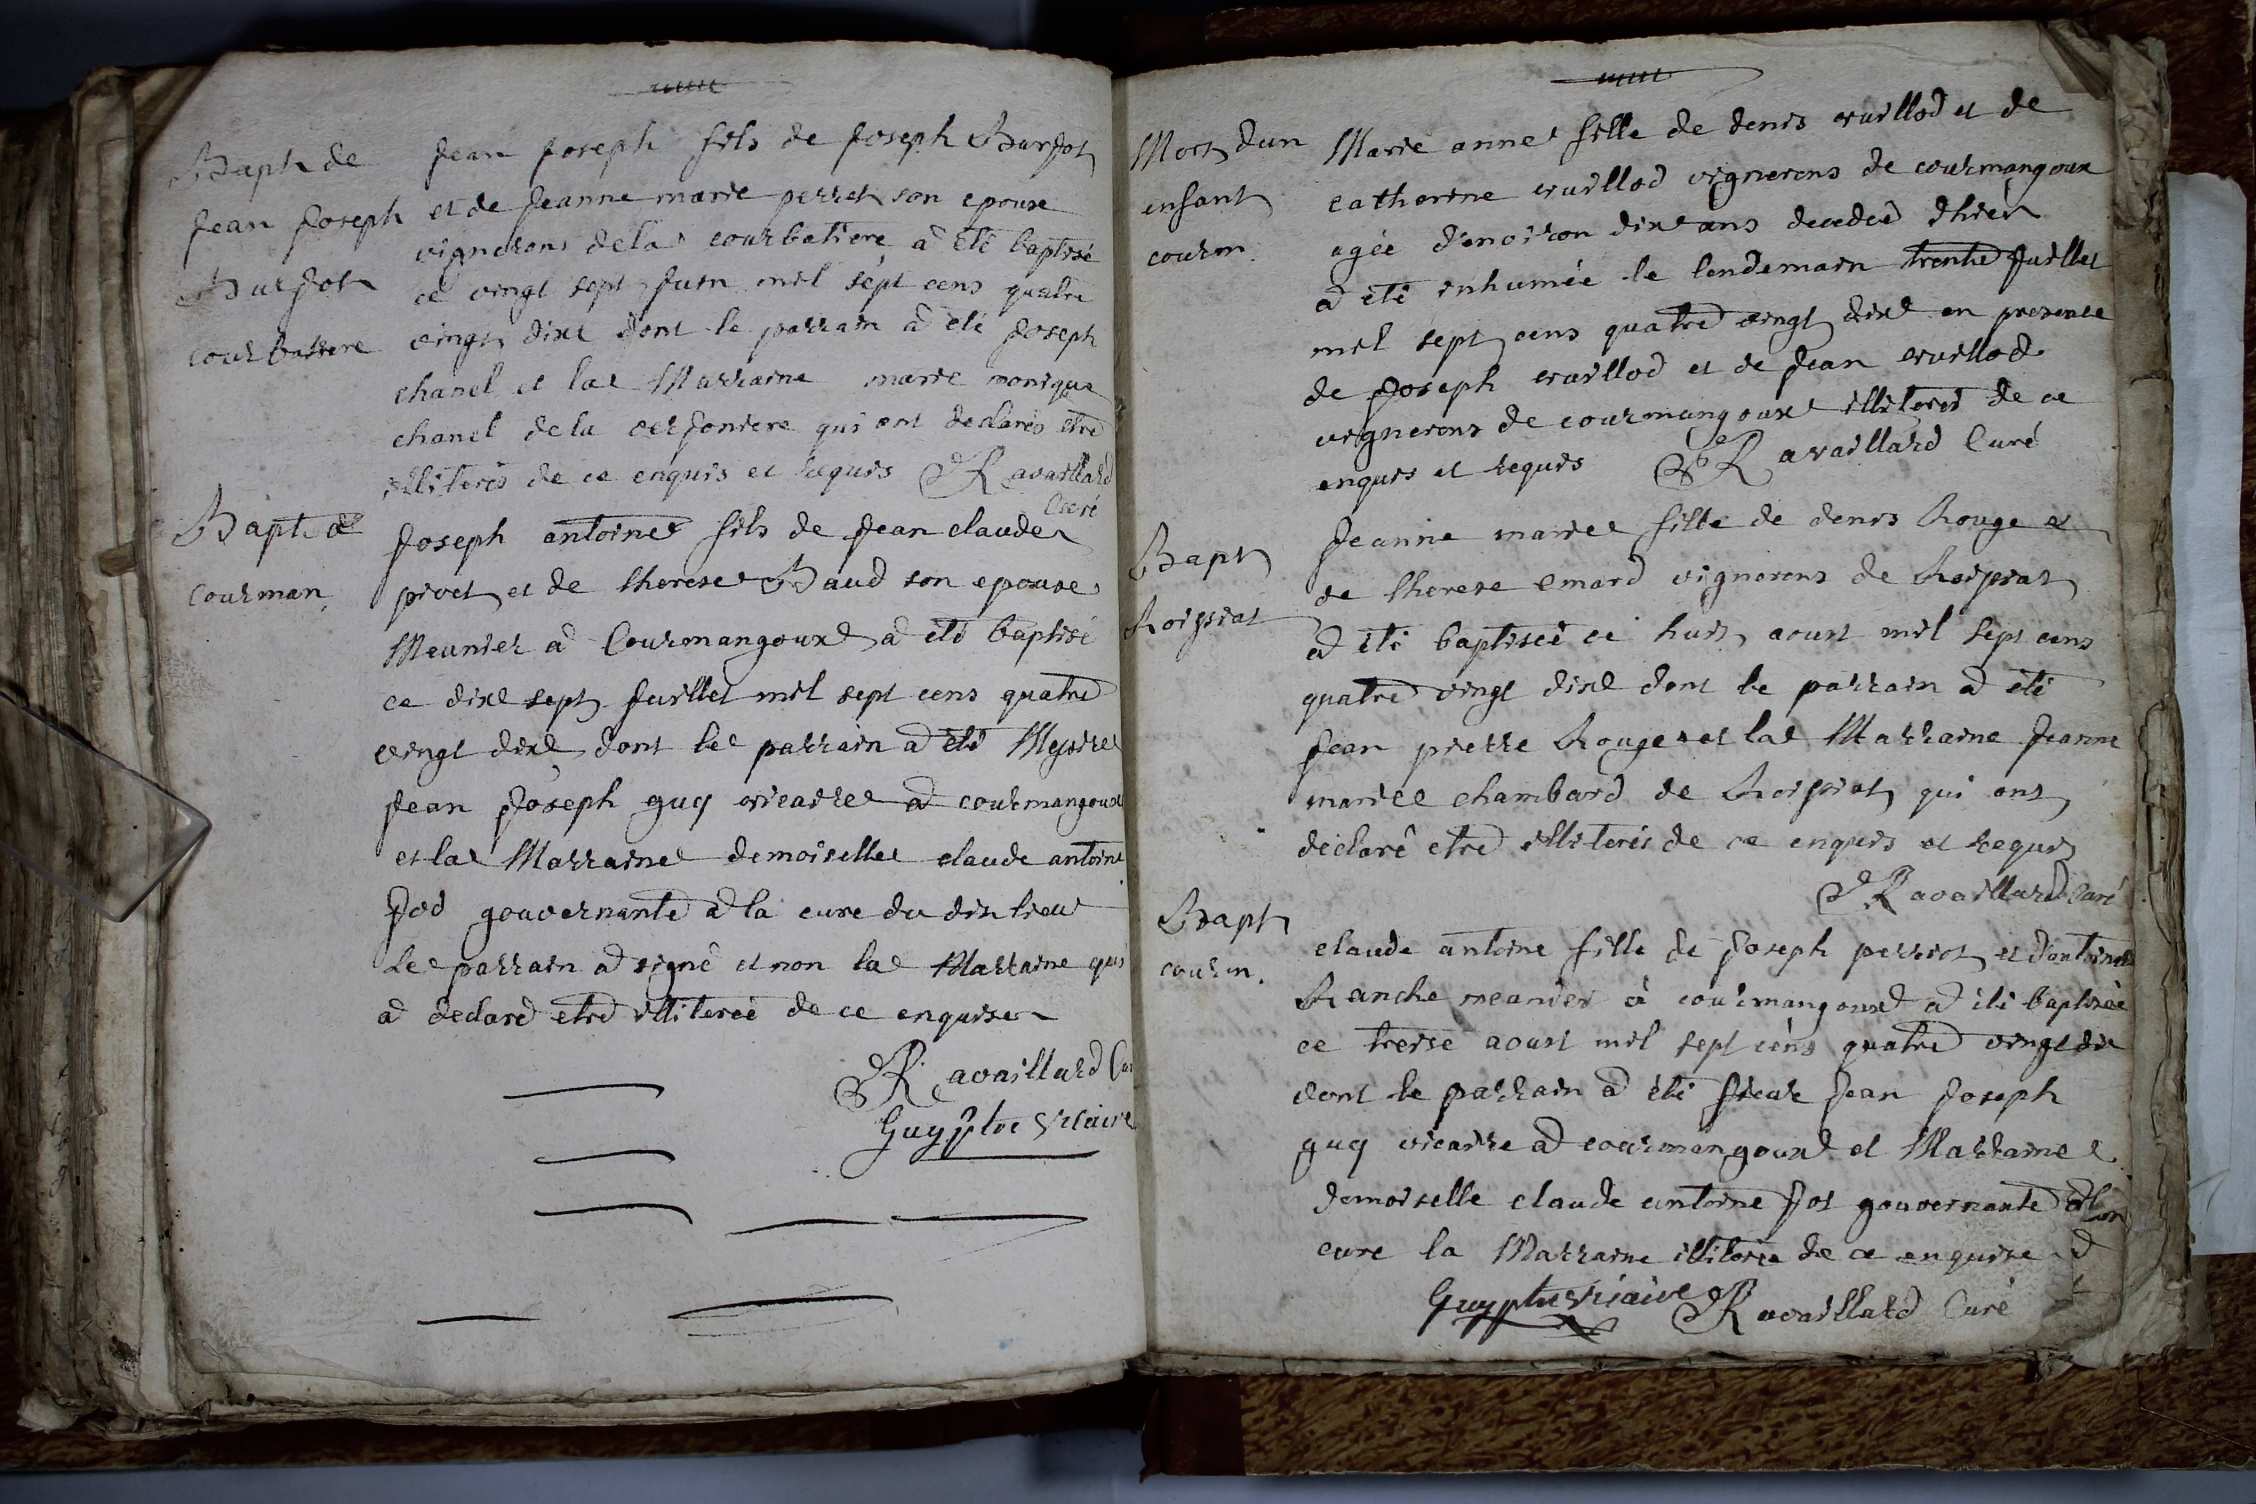 Bapt de
Jean Joseph
Burjot
courbatiere
Jean Joseph fils de Joseph Burjot
et de Jeanne marie perret son epouse
vignerons dela courbatiere a été baptisé
ce vingt sept Juin mil sept cens quatre
vingt dixe dont le parrain a été Joseph
chanel et la Marraine marie monique
chanel dela verjoniere qui ont declarés etre
illiterés de ce enquis et requis Ravaillard
Curé
Bapt a
courman.
Joseph antoine fils de Jean claude
pivet et de therese Baud son epouse
Meunier a Courmangoux a été baptisé
ce dixe sept Juillet mil sept cens quatre
vingt dixe dont le parrain a été Messire
Jean Joseph guy vicaire a courmangoux
et la Marraine demoiselle claude antoine
Jod gouvernante a la cure du dit lieu
Le parrain a signé et non la Marraine qui
a declaré etre illiterée de ce enquise
Ravaillard Cu
Guy ptre Vicaire
Mort dun
enfant
courm.
Marie anne fille de denis cruillod et de
catherine cruillod vignerons de courmangoux
agée d'environ dixe ans decedée d'hier
a été inhumée le lendemain trente Juillet
mil sept cens quatre vingt dixe en presence
de Joseph cruillod et de Jean cruillod
vignerons de courmangoux illiterés de ce
enquis et requis Ravaillard Curé
Bapt
Roissiat
Jeanne marie fille de denis Rouge et
de therese emard vignerons de Roissiat
a été baptisée ce huit aoust mil sept cens
quatre vingt dixe dont le parrain a été
Jean pierre Rouge et la Marraine Jeanne
mariee chambard de Roissiat qui ont
déclaré etre illiterés de ce enquis et requis
Ravaillard Curé
Bapt
courm.
claude antoine fille de Joseph perrot et d'antoine
Ranche meunier à courmangoux a été baptisée
ce treise aoust mil sept céns quatre vingt dix
dont le parrain a été sieur Jean Joseph
guy vicaire a courmangoux et Marraine
demoiselle claude antoine Jot gouvernante
cure la Marraine illiterée de ce enquise
Guy ptre Vicaire Ravaillard Curé